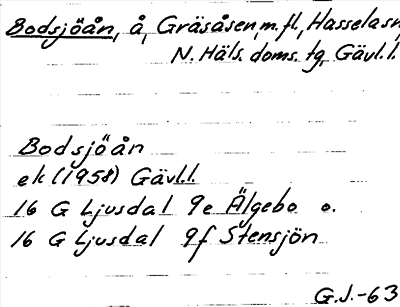 Bodsjöån, å, Gräsåsen, m.fl., Hassela sn,
N. Häls. doms. tg, Gävl. l.
Bodsjöån
ek (1958) Gävl.l.
16 G Ljusdal 9e Älgebo o.
16 G Ljusdal 9f Stensjön
G.J.-63